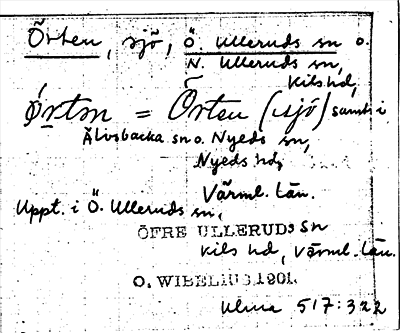 Örten, sjö, Ö. Ulleruds sn o.
N. Ulleruds sn,
Kils hd,
= Örten (sjö) samt i
Älvsbacka sn o. Nyeds sn,
Nyeds hd,
Värml. län.
Uppt. i Ö. Ulleruds sn,
ÖFRE ULLERUDS sn
Kils hd, Värml. län.
O. WIBELIUS 1901.
517:322